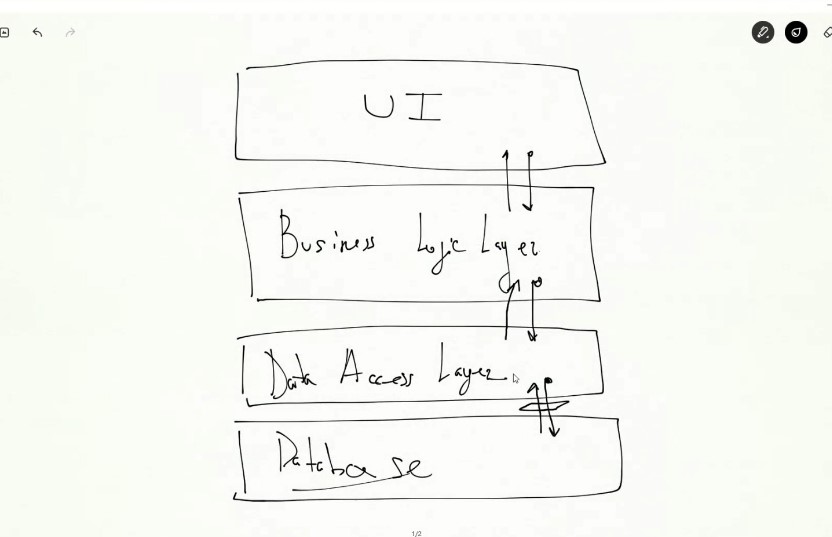 UI
Business Logic Layer
Data Access Layer
Database
1/2